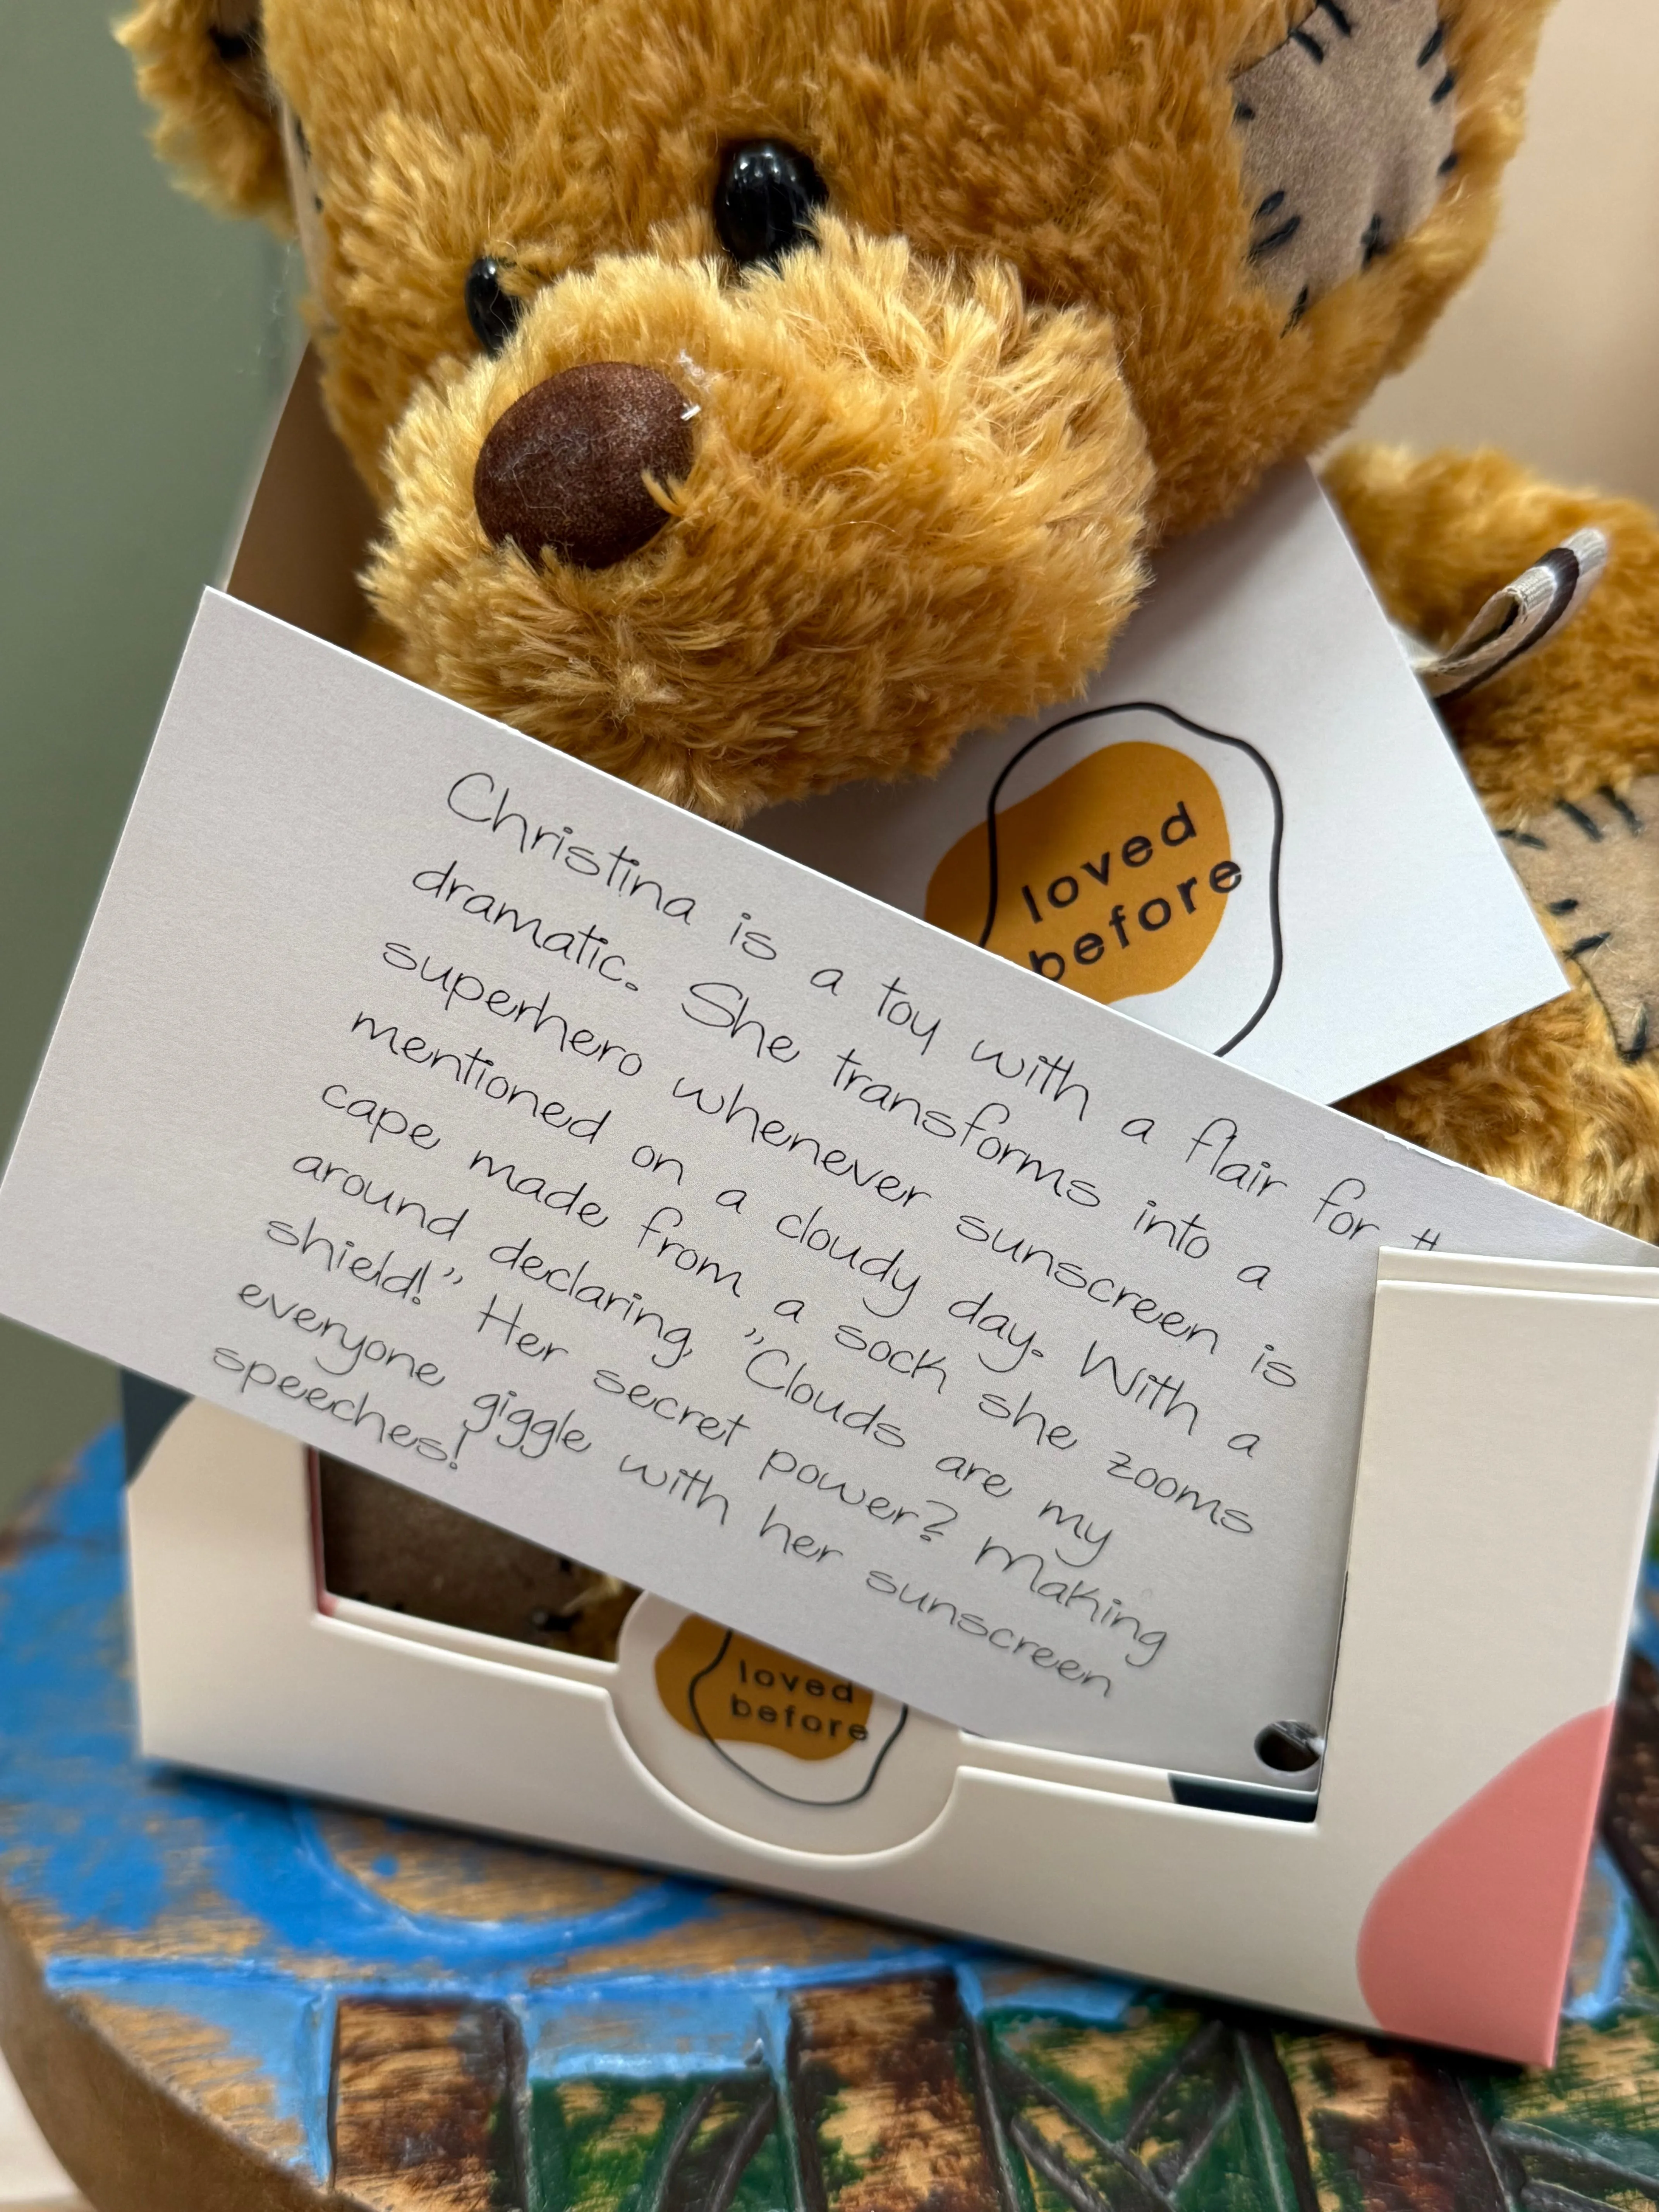 loved
before
Christina is a toy with a flair for
dramatic. She transforms into a
superhero whenever sunscreen is
mentioned on a cloudy day. With a
cape made from a sock she zooms
around declaring, "Clouds are my
shield!" Her secret power? Making
everyone giggle with her sunscreen
speeches!
loved
before